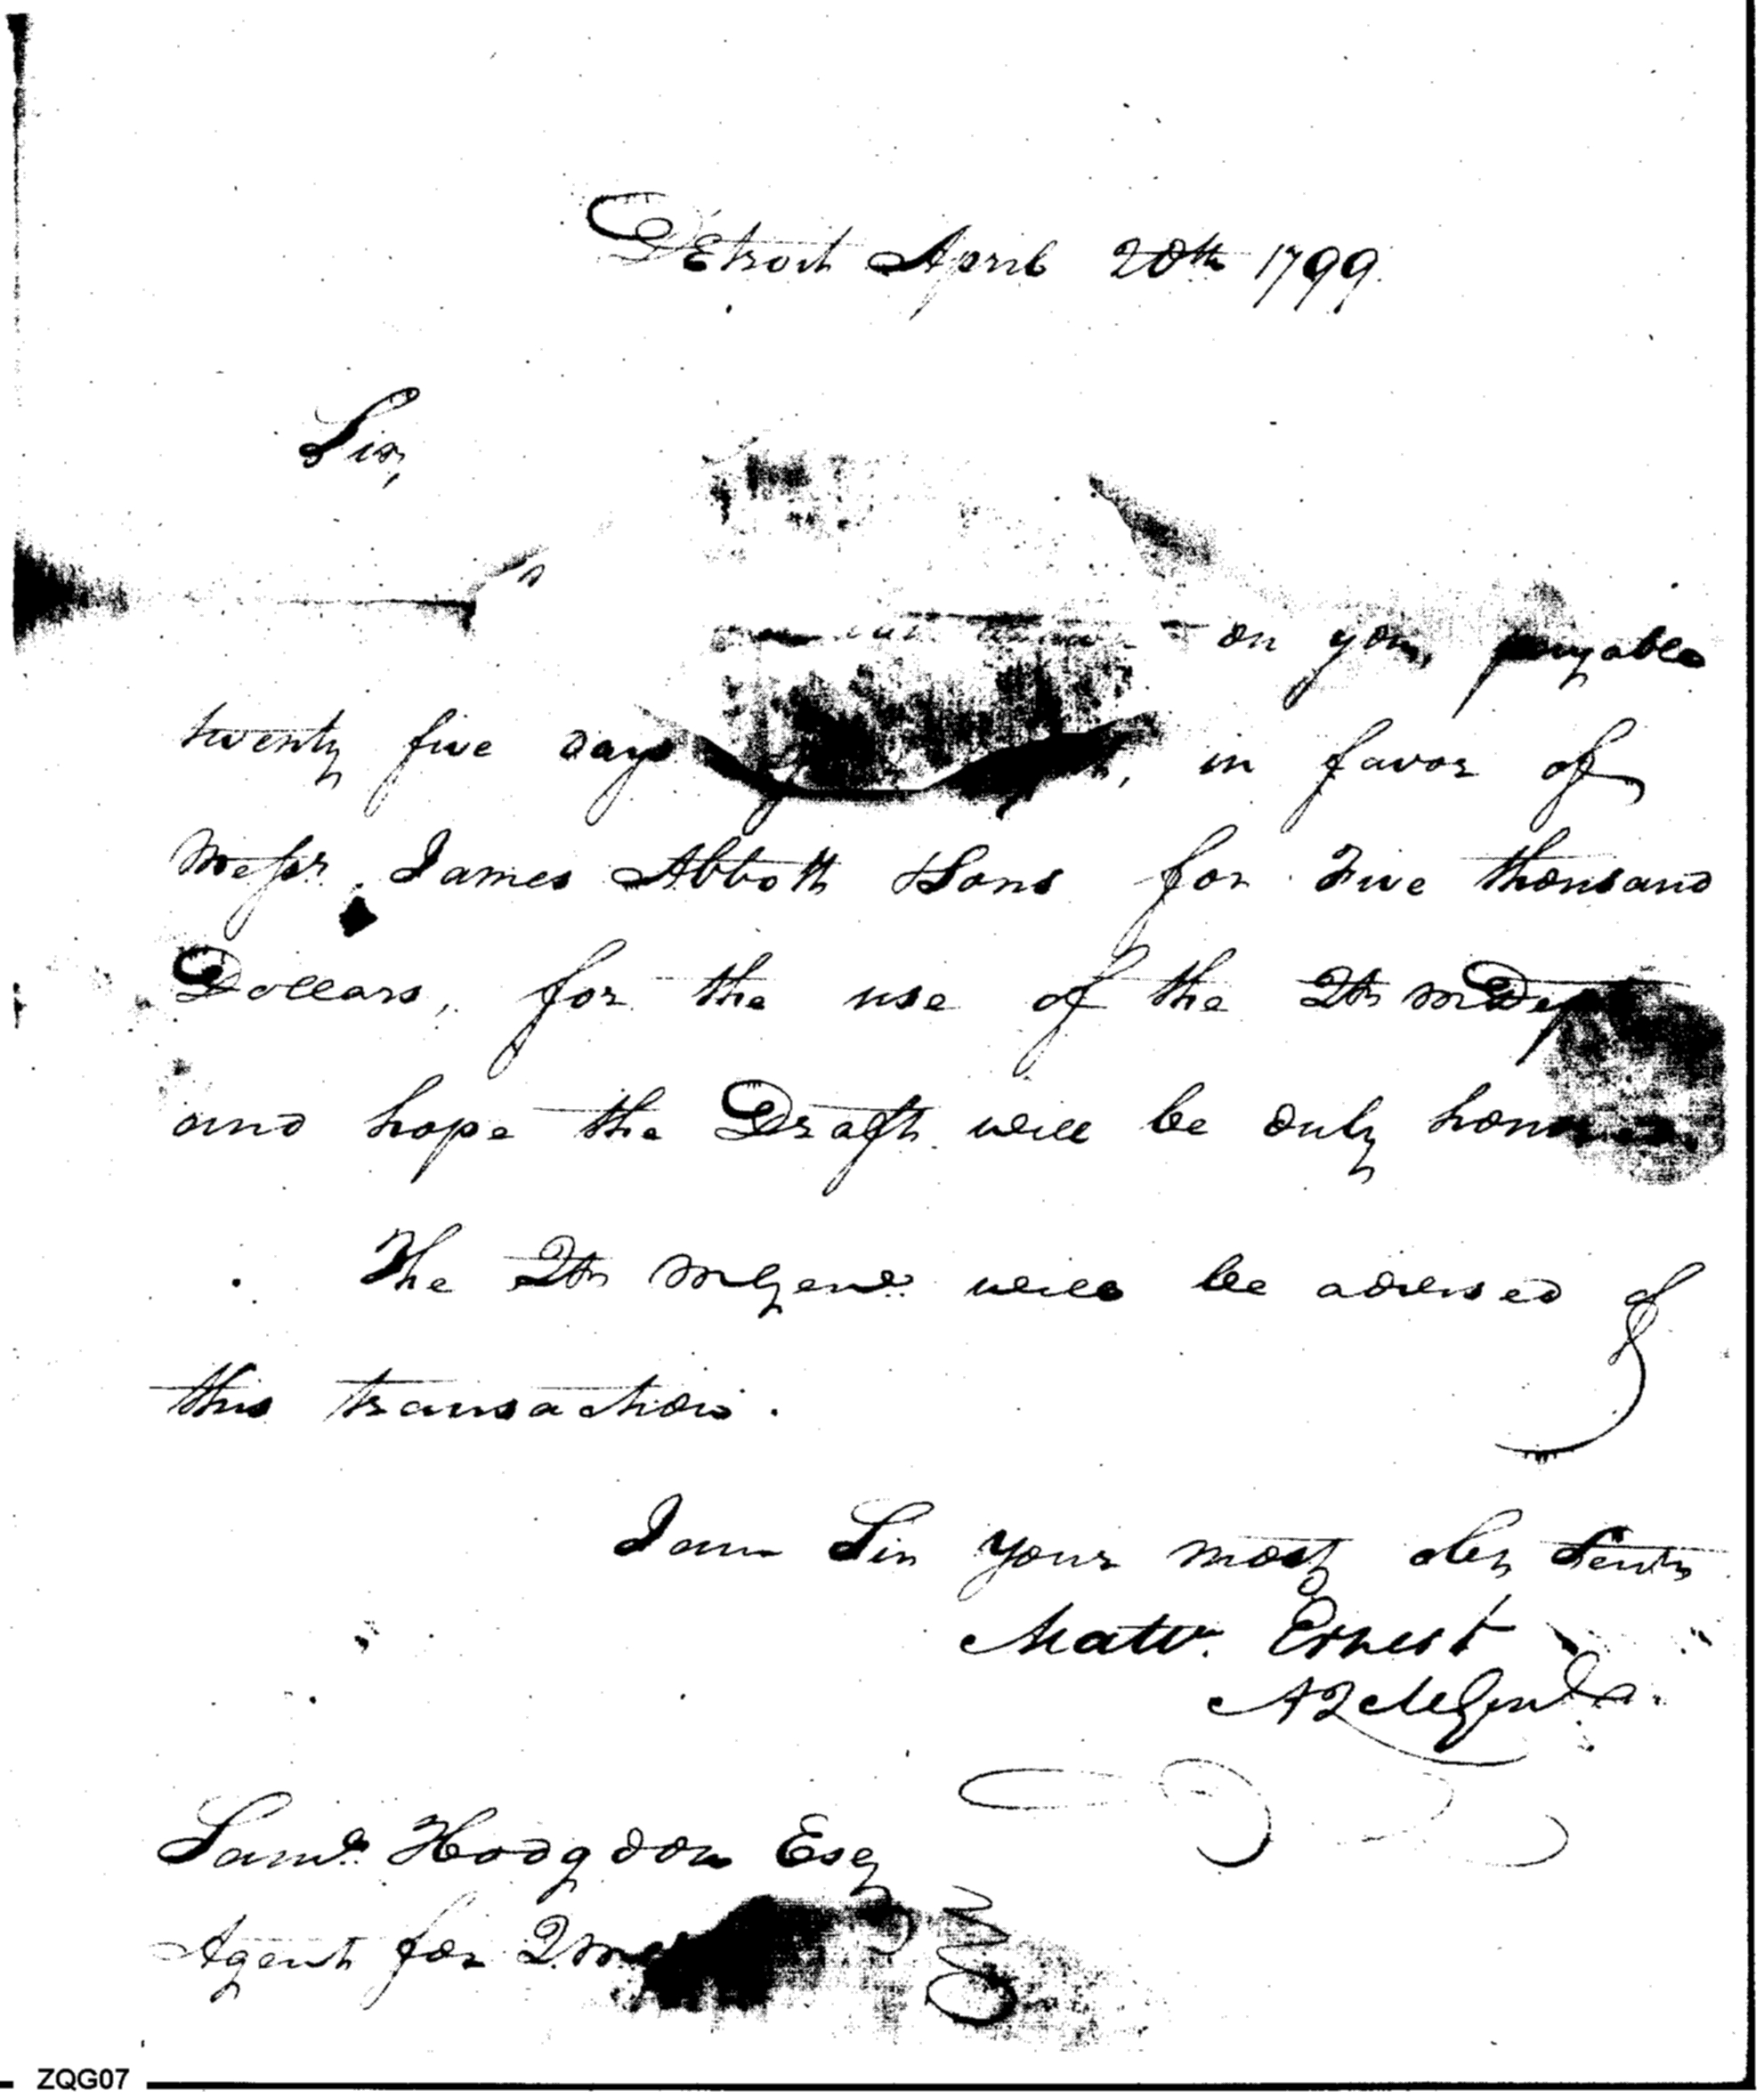 Detroit April 20th 1799.
Sir,
on you, payable
twenty five days in favor of
Messrs. James Abbott & Sons for Five thousand
Dollars, for the use of the Qr M Dep
and hope the Draft will be duly
The Qr M Genl. will be advised of
this transaction.
I am Sir your most obt Servt
Mattw. Ernest
AQMGenl
Saml. Hodgdon Esq
Agent for
ZQG07